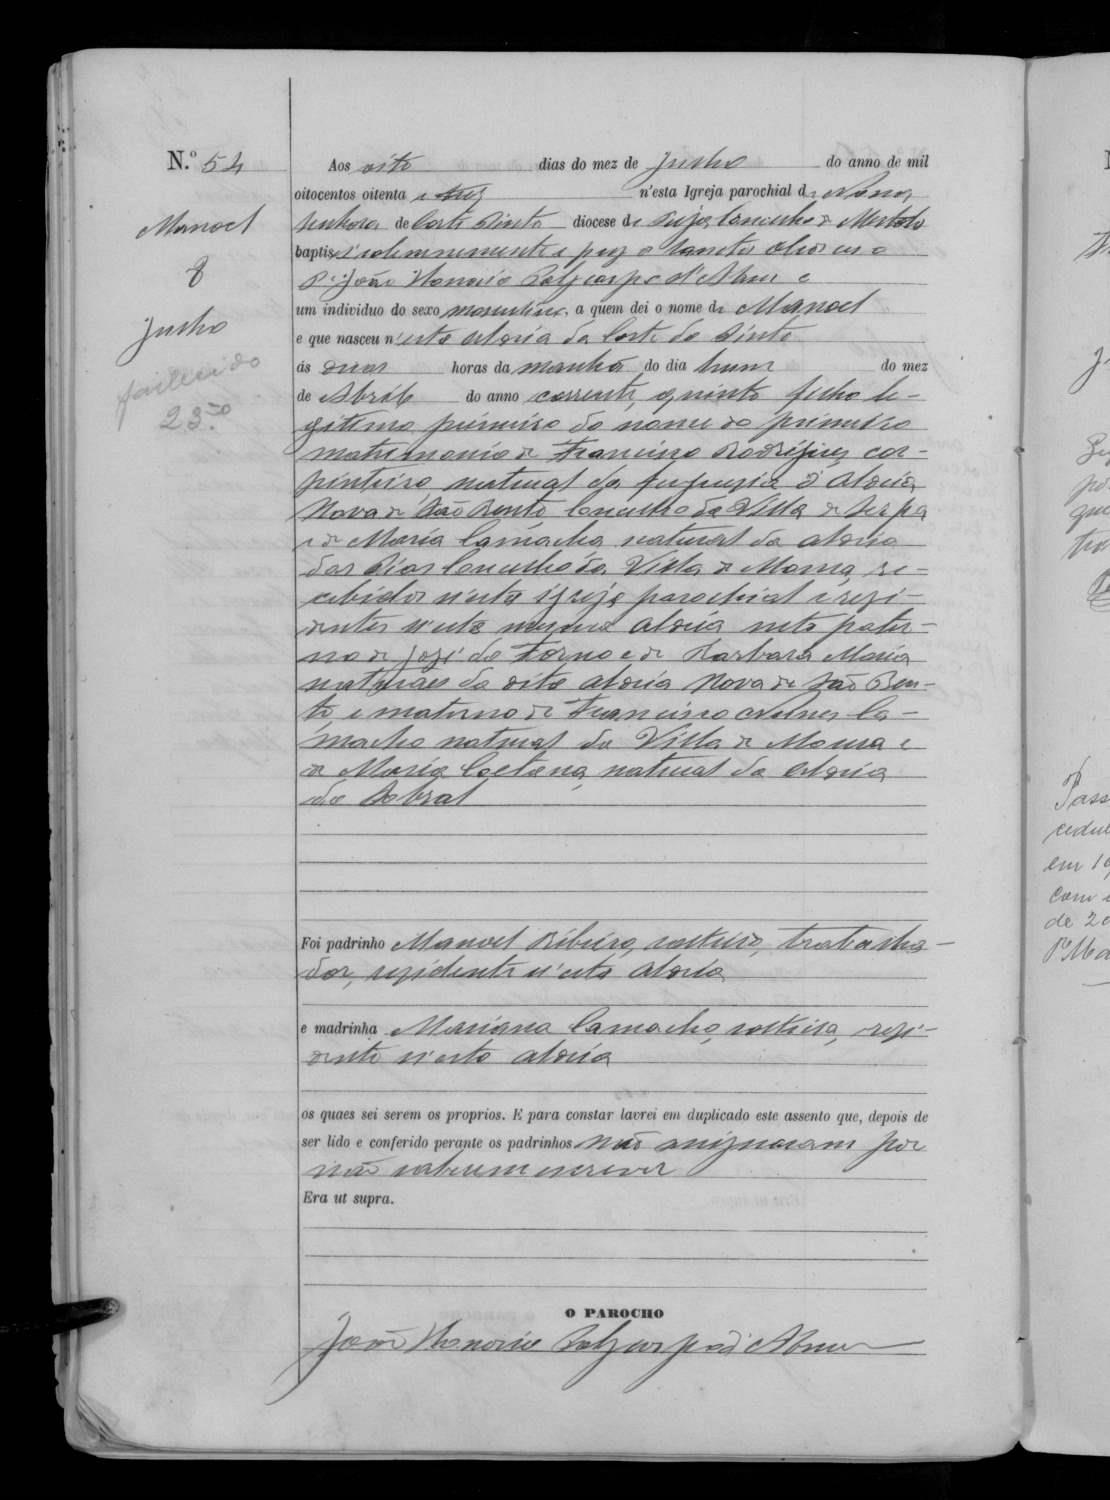 N.º 54
Manoel
8
Junho
fallecido
Aos oito dias do mez de Junho do anno de mil
oitocentos oitenta e tres n'esta Igreja parochial de Nossa
Senhora de Corte Pinto diocese de Beja, Concelho de Mertola
baptisei solemnemente e puz os Sanctos Oleos eu o
P.e João Honorio Polycarpo d'Abreu e
um individuo do sexo masculino, a quem dei o nome de Manoel
e que nasceu n'esta aldeia da Corte do Pinto
ás duas horas da manhã do dia hum do mez
de Abril do anno corrente, quinto filho le-
gitimo primeiro do nome do primeiro
matrimonio de Francisco Rodrigues, car-
pinteiro, natural da freguezia d'Aldeia
Nova de São Bento, Concelho da Villa de Serpa
e de Maria Camacha natural da aldeia
das Pias Concelho da Villa de Moura, re-
cebidos n'esta igreja parochial e resi-
dentes n'esta mesma aldeia neto pater-
no de José do Forno e de Barbara Maria
naturaes da dita aldeia Nova de São Ben-
to, e materno de Francisco Nunes Ca-
macho natural da Villa de Moura e
de Maria Caetana, natural da Aldeia
do Sobral
Foi padrinho Manoel Ribeiro, solteiro, trabalha-
dor, residente n'esta aldeia
e madrinha Mariana Camacho, solteira, resi-
dente n'esta aldeia
os quaes sei serem os proprios. E para constar lavrei em duplicado este assento que, depois de
ser lido e conferido perante os padrinhos não assignaram por
não saberem escrever
Era ut supra.
O PAROCHO
João Honorio Polycarpo d'Abreu